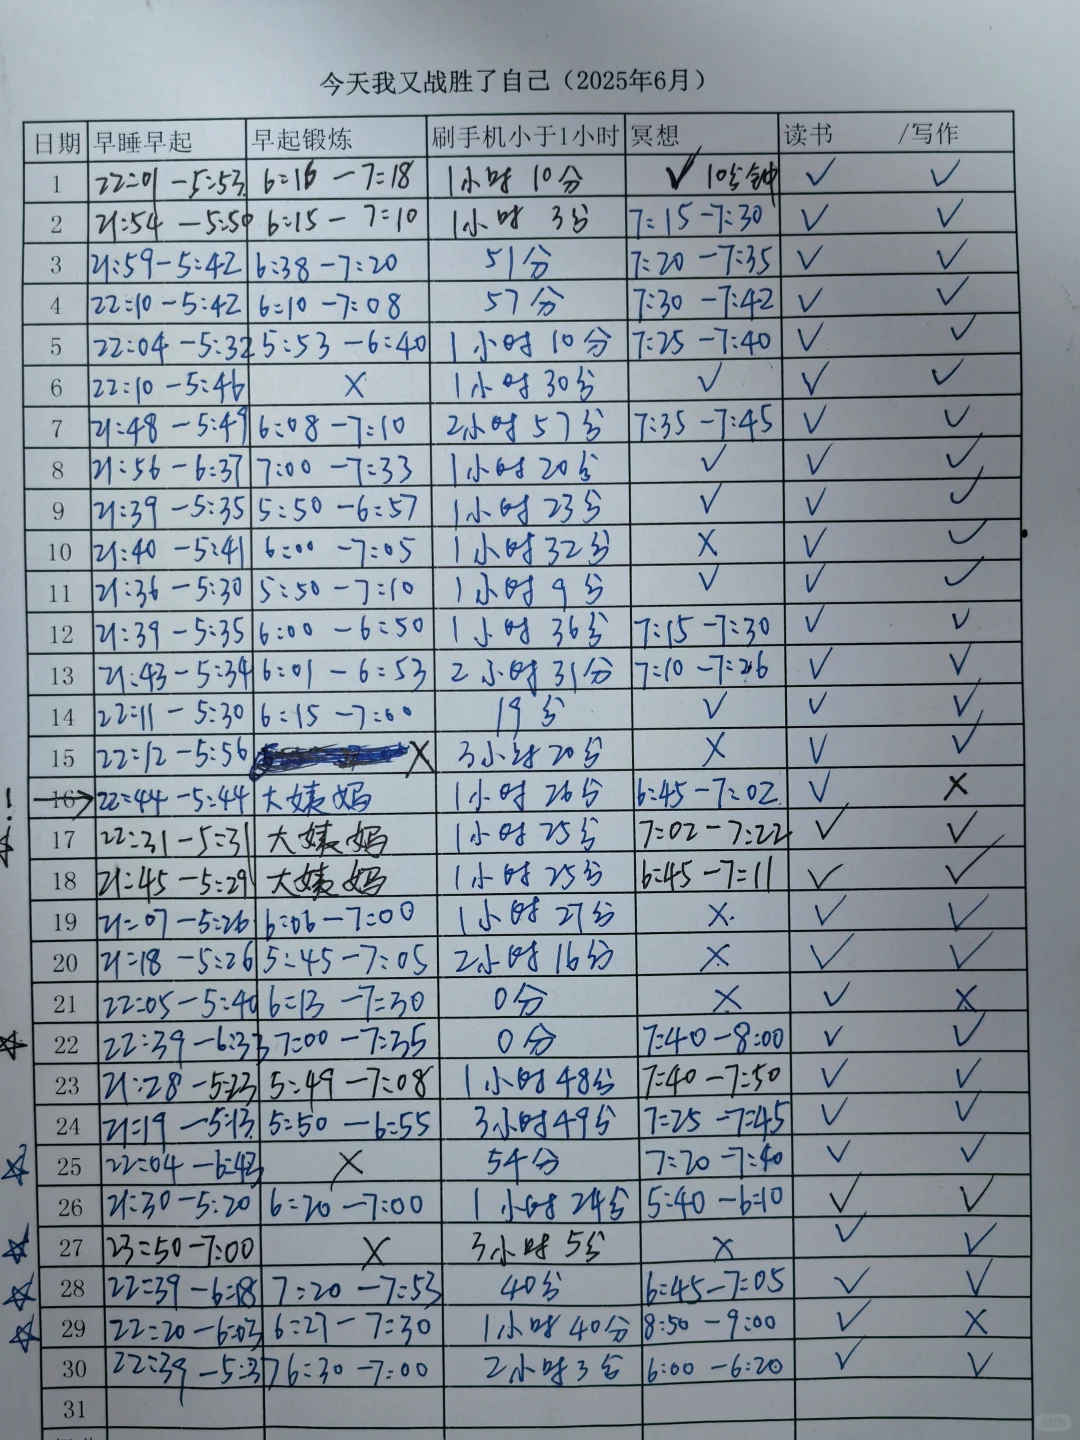 今天我又战胜了自己（2025年6月）
日期 早睡早起 早起锻炼 刷手机小于1小时 冥想 读书 /写作
1 22:01-5:53 6:16-7:18 1小时10分 ✓10分钟 ✓ ✓
2 21:54-5:50 6:15-7:10 1小时3分 7:15-7:30 ✓ ✓
3 21:59-5:42 6:38-7:20 51分 7:20-7:35 ✓ ✓
4 22:10-5:42 6:10-7:08 57分 7:30-7:42 ✓ ✓
5 22:04-5:32 5:53-6:40 1小时10分 7:25-7:40 ✓ ✓
6 22:10-5:46 X 1小时30分 ✓ ✓ ✓
7 21:48-5:49 6:08-7:10 2小时57分 7:35-7:45 ✓ ✓
8 21:56-6:37 7:00-7:33 1小时20分 ✓ ✓ ✓
9 21:39-5:35 5:50-6:57 1小时23分 ✓ ✓ ✓
10 21:40-5:41 6:00-7:05 1小时32分 X ✓ ✓
11 21:36-5:30 5:50-7:10 1小时9分 ✓ ✓ ✓
12 21:39-5:35 6:00-6:50 1小时36分 7:15-7:30 ✓ ✓
13 21:43-5:34 6:01-6:53 2小时31分 7:10-7:26 ✓ ✓
14 22:11-5:30 6:15-7:00 19分 ✓ ✓ ✓
15 22:12-5:56 X 3小时20分 X ✓ ✓
16 22:44-5:44 大姨妈 1小时26分 6:45-7:02 ✓ X
17 22:31-5:31 大姨妈 1小时25分 7:02-7:22 ✓ ✓
18 21:45-5:29 大姨妈 1小时25分 6:45-7:11 ✓ ✓
19 21:07-5:26 6:06-7:00 1小时27分 X ✓ ✓
20 21:18-5:26 5:45-7:05 2小时16分 X ✓ ✓
21 22:05-5:40 6:13-7:30 0分 X ✓ X
22 22:39-6:33 7:00-7:35 0分 7:40-8:00 ✓ ✓
23 21:28-5:23 5:49-7:08 1小时48分 7:40-7:50 ✓ ✓
24 21:19-5:13 5:50-6:55 3小时49分 7:25-7:45 ✓ ✓
25 22:04-6:43 X 54分 7:20-7:40 ✓ ✓
26 21:30-5:20 6:20-7:00 1小时24分 5:40-6:10 ✓ ✓
27 23:50-7:00 X 3小时5分 X ✓ ✓
28 22:39-6:18 7:20-7:53 40分 6:45-7:05 ✓ ✓
29 22:20-6:03 6:27-7:30 1小时40分 8:50-9:00 ✓ X
30 22:39-5:37 6:30-7:00 2小时3分 6:00-6:20 ✓ ✓
31